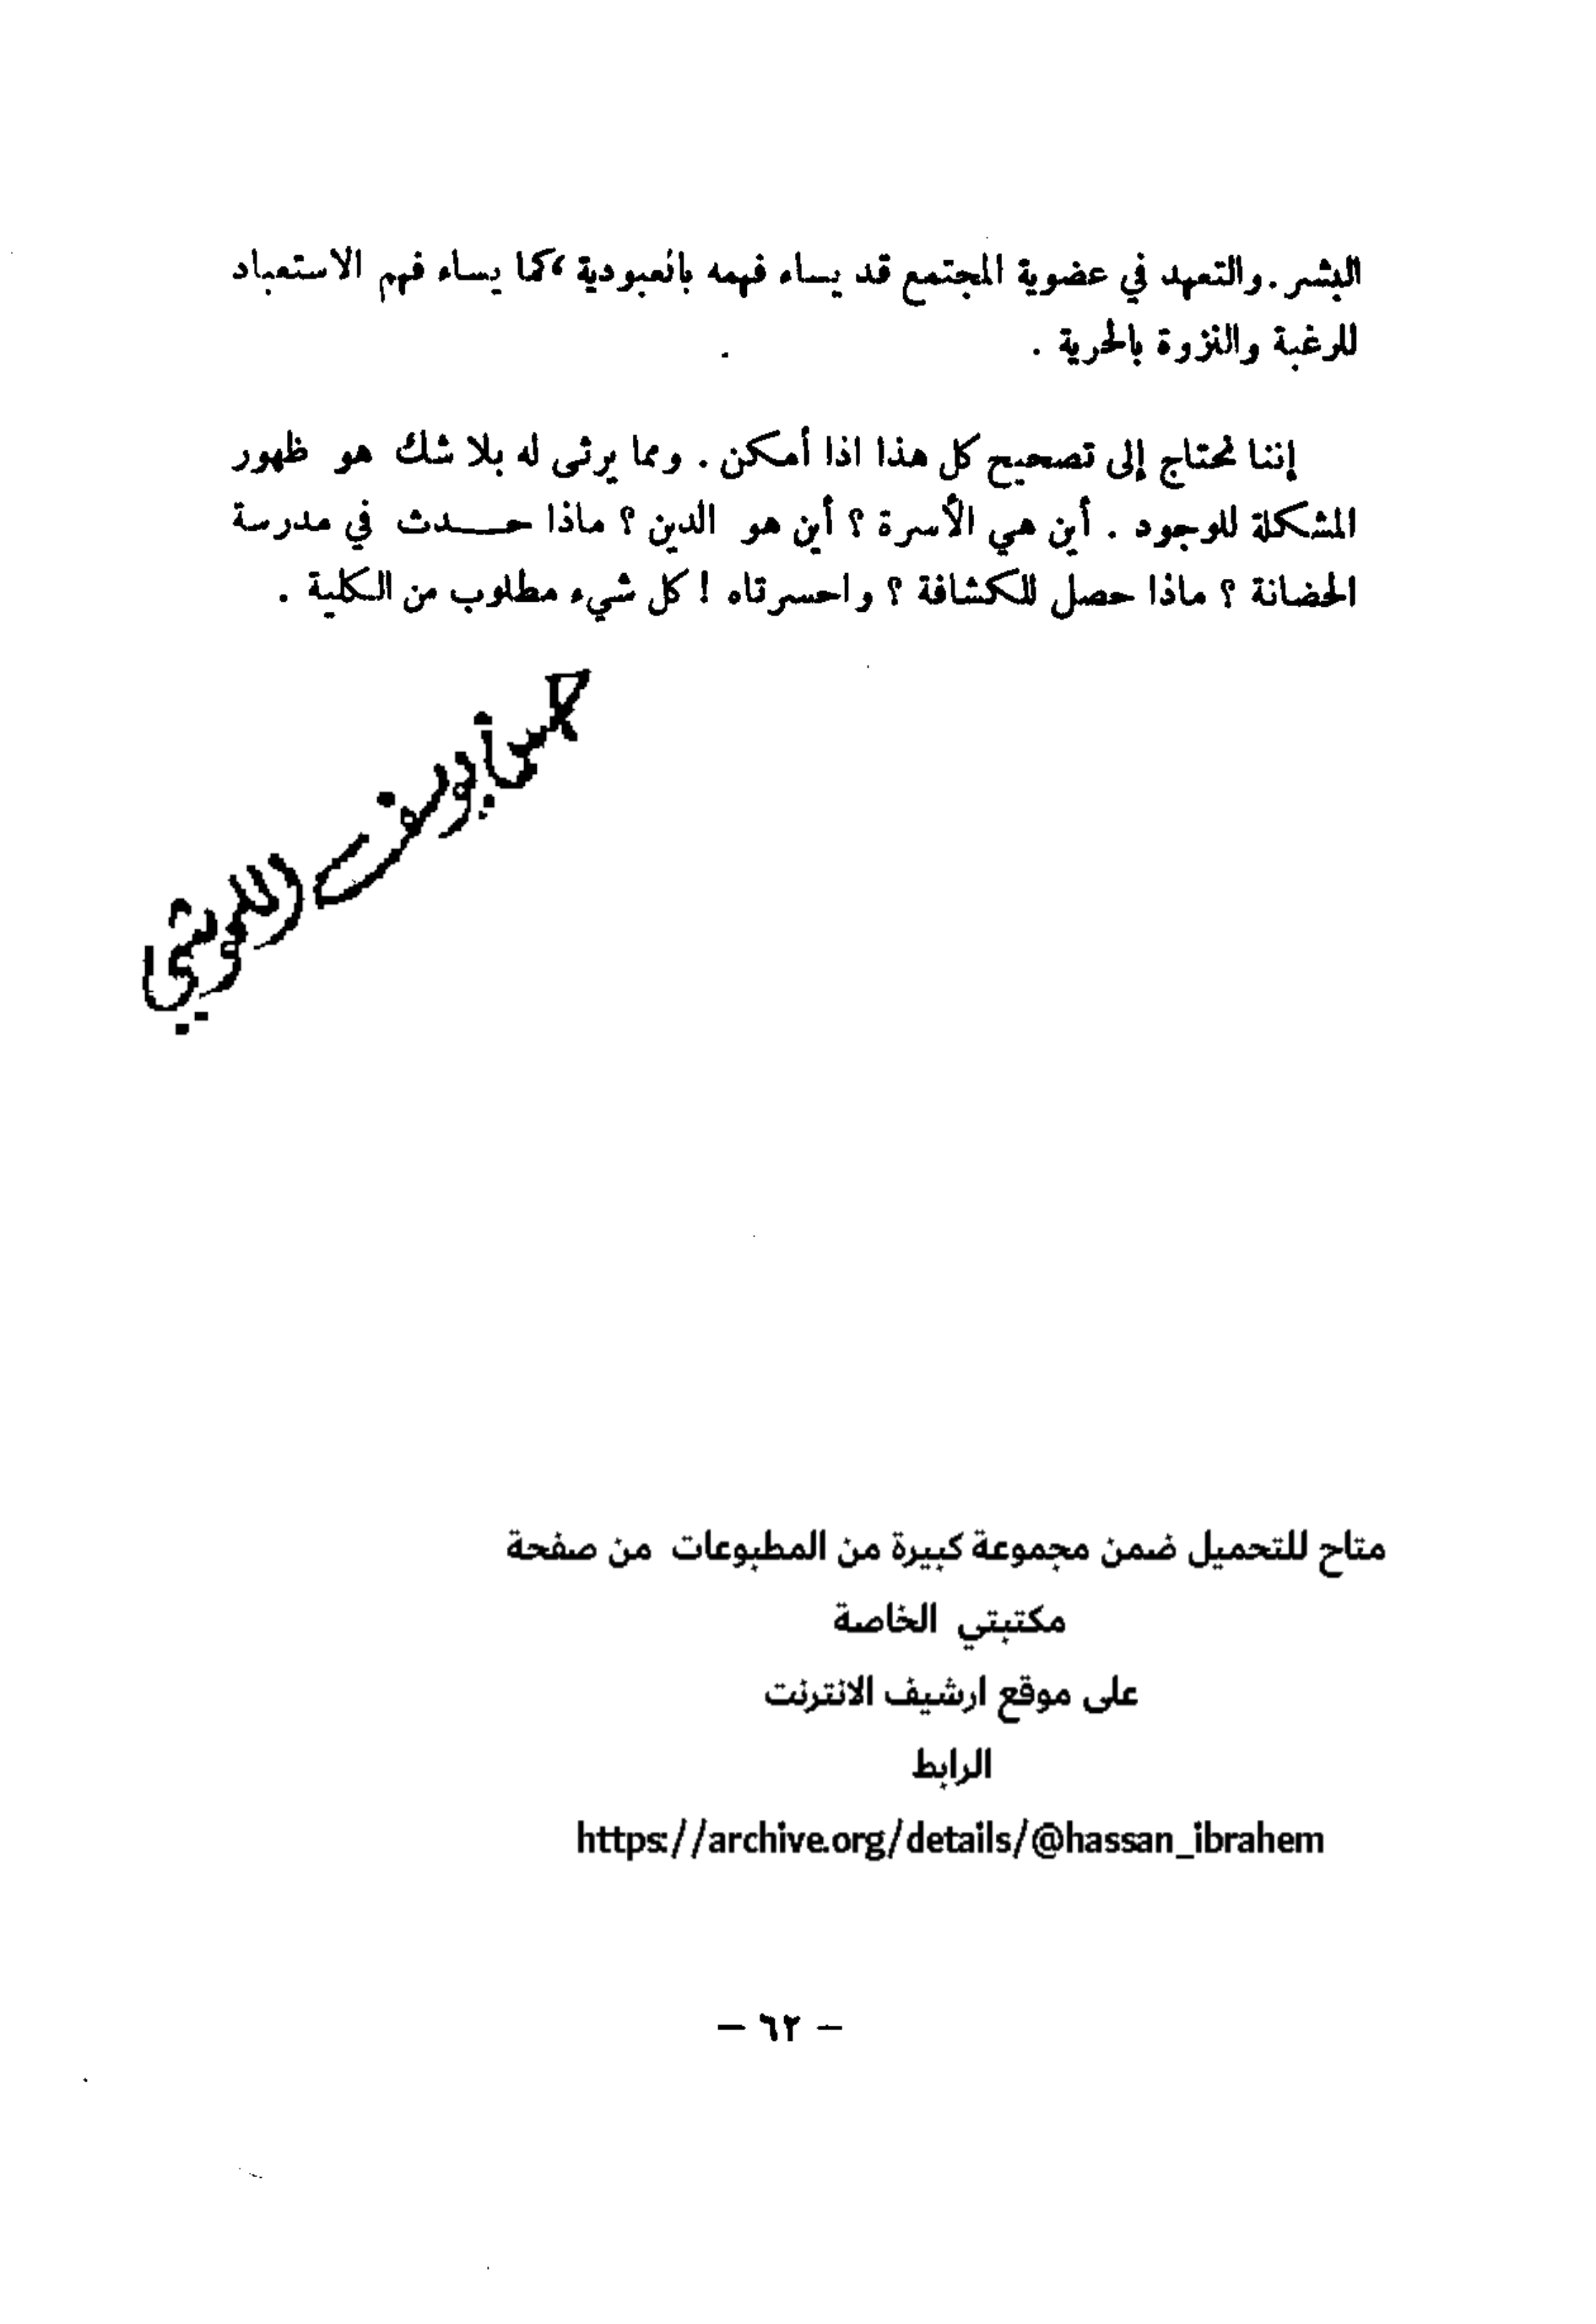 البشر . والتعهد في عضوية المجتمع قد يساء فهمه بالعبودية ، كما يساء فهم الاستعباد
للرغبة والنزوة بالحرية .
إننا نحتاج إلى تصحيح كل هذا اذا أمكن . ومما يرثى له بلا شك هو ظهور
المشكلة للوجود . أين هي الأسرة ؟ أين هو الدين ؟ ماذا حـــدث في مدرسة
الحضانة ؟ ماذا حصل للكشافة ؟ واحسرتاه ! كل شيء مطلوب من الكلية .
متاح للتحميل ضمن مجموعة كبيرة من المطبوعات من صفحة
مكتبتي الخاصة
على موقع ارشيف الانترنت
الرابط
https://archive.org/details/@hassan_ibrahem
– ٦٢ –